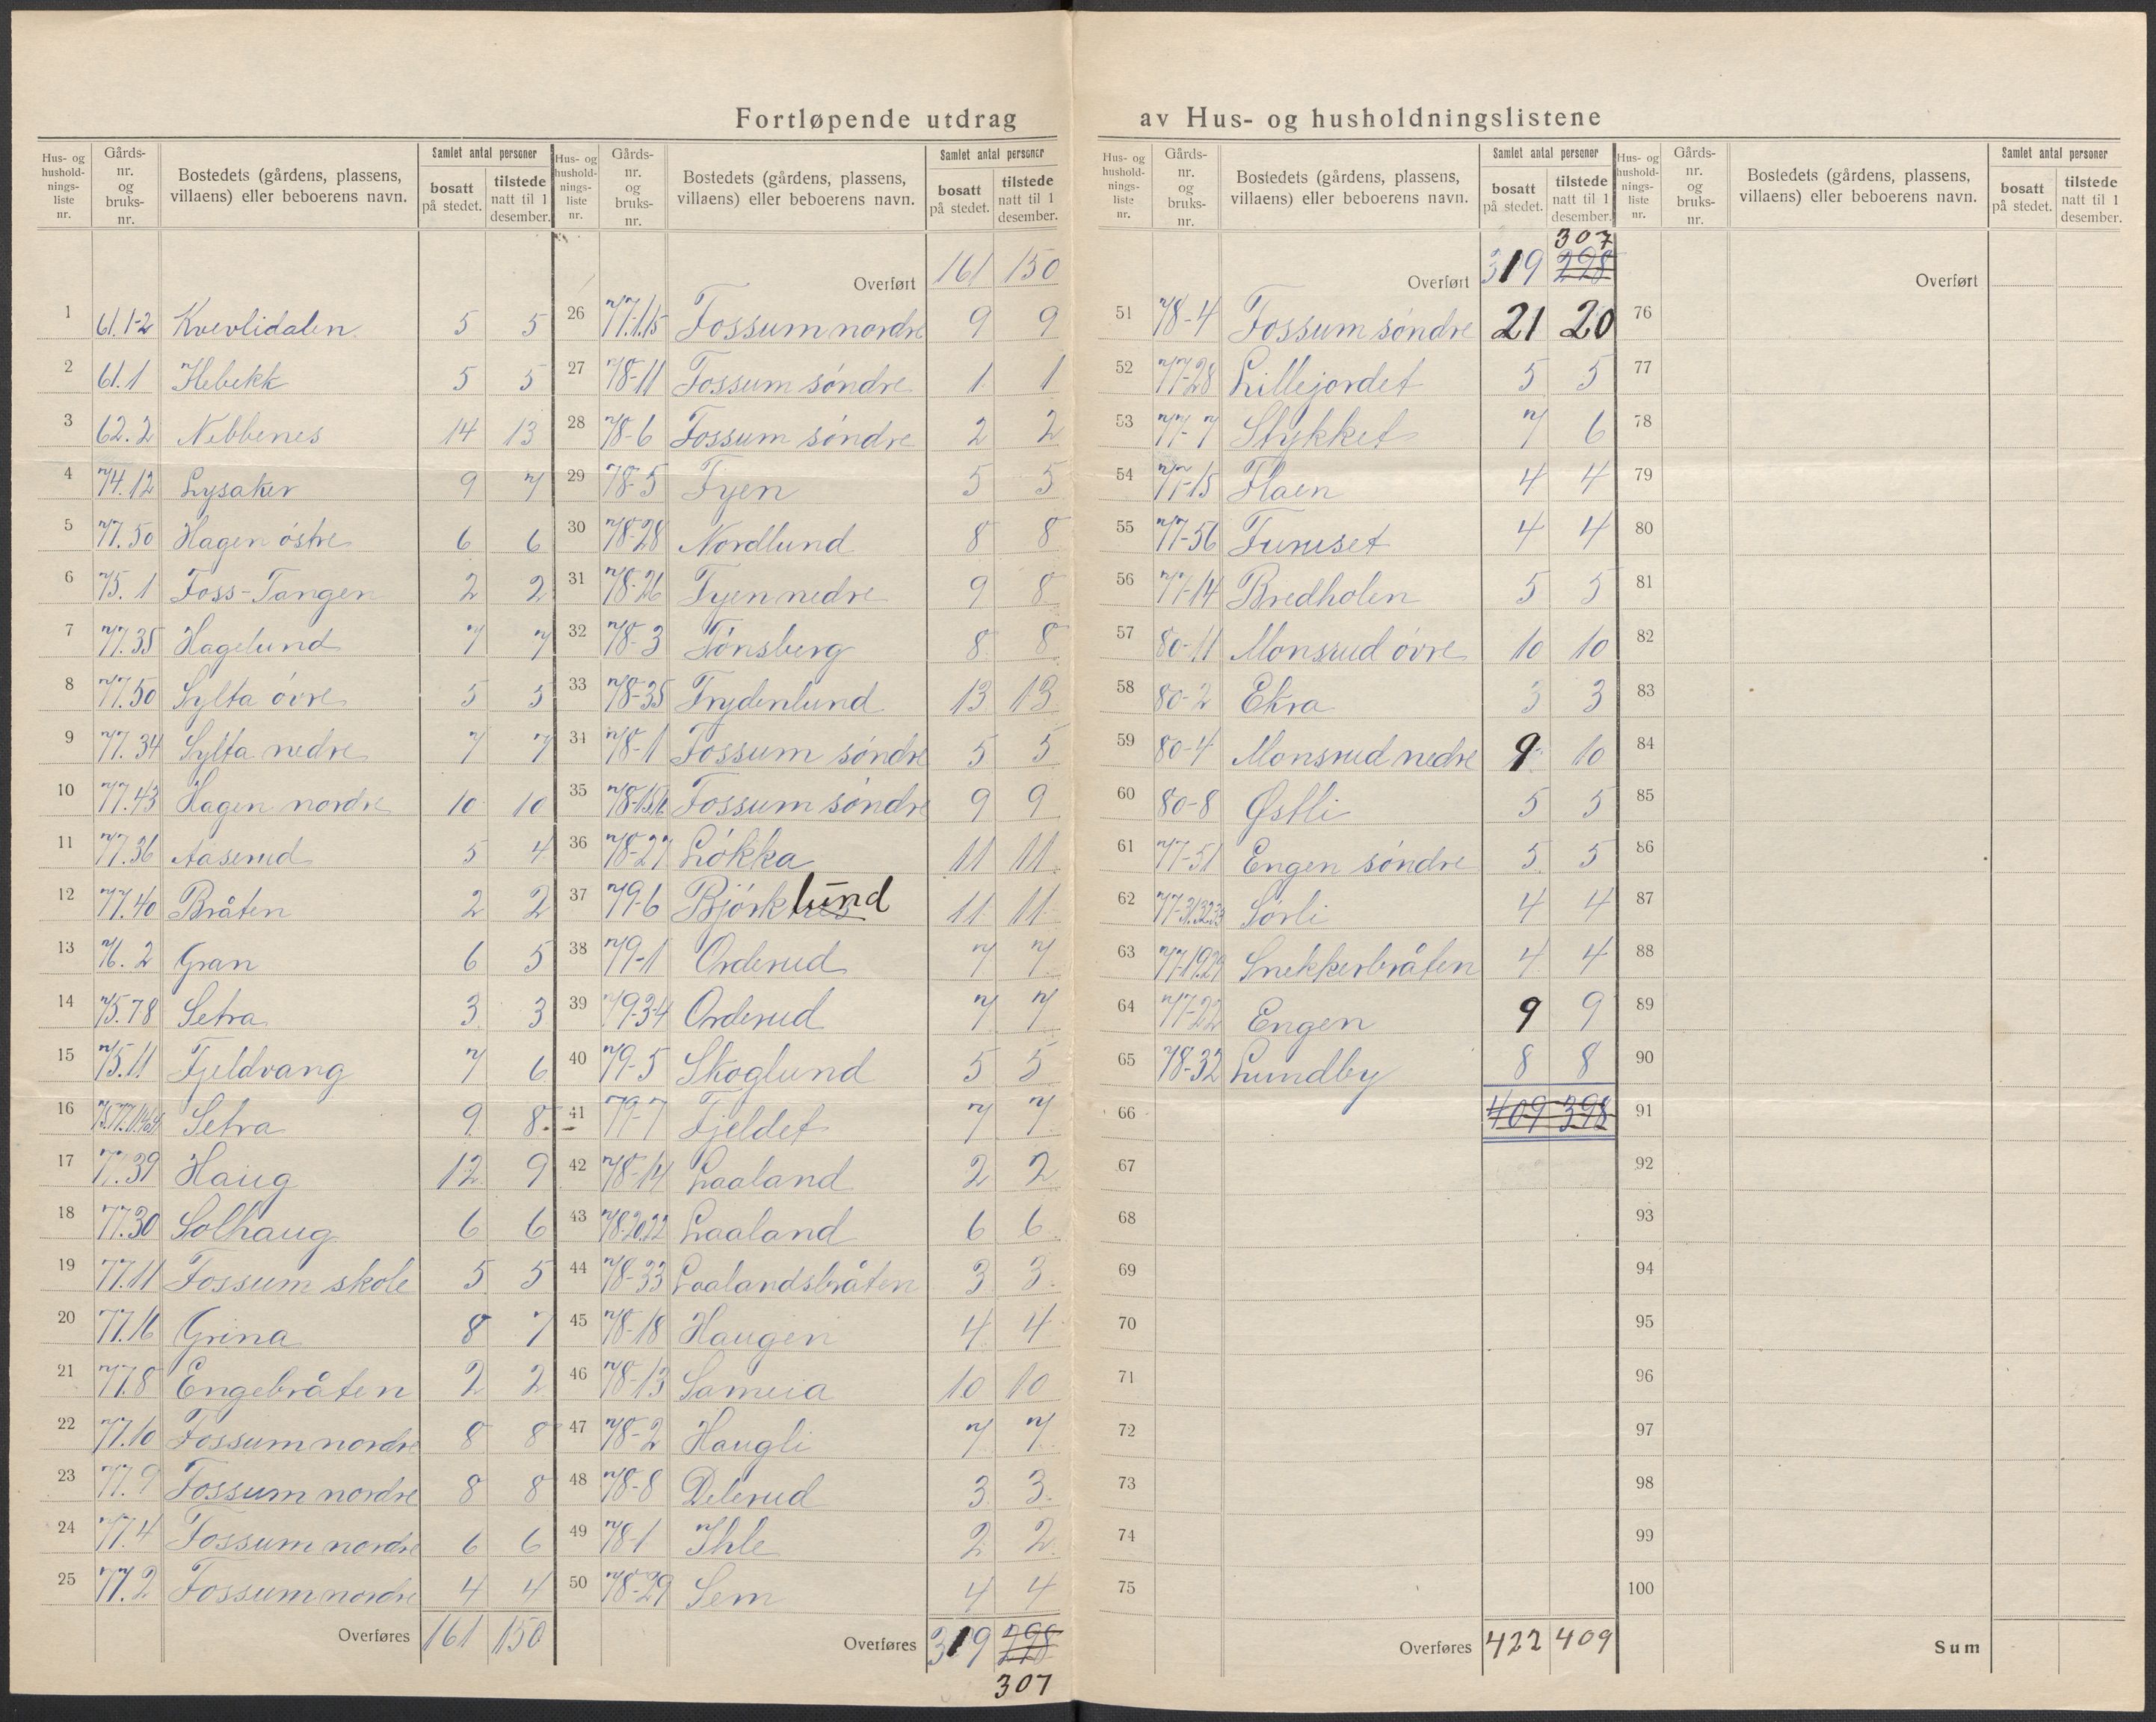 Fortløpende utdrag av Hus- og husholdningslistene
Hus- og hushold-nings-liste nr. Gårds-nr. og bruks-nr. Bostedets (gårdens, plassens, villaens) eller beboerens navn. Samlet antal personer bosatt på stedet. tilstede natt til 1 desember.
1 61.1-2 Kvevlidalen 5 5
2 61.1 Hebekk 5 5
3 62.2 Nebbenes 14 13
4 74.12 Lysaker 9 7
5 77.50 Hagen østre 6 6
6 75.1 Foss-Tangen 2 2
7 77.35 Hagelund 7 7
8 77.50 Sylta øvre 5 5
9 77.34 Sylta nedre 7 7
10 77.43 Hagen nordre 10 10
11 77.36 Aaserud 5 4
12 77.40 Bråten 2 2
13 76.2 Gran 6 5
14 75.78 Setra 3 3
15 75.11 Fjeldvang 7 6
16 Setra 9 8
17 77.39 Haug 12 9
18 77.30 Solhaug 6 6
19 77.11 Fossum skole 5 5
20 77.16 Grina 8 7
21 77.8 Engebråten 2 2
22 77.10 Fossum nordre 8 8
23 77.9 Fossum nordre 8 8
24 77.4 Fossum nordre 6 6
25 77.2 Fossum nordre 4 4
Overføres 161 150
Hus- og hushold-nings-liste nr. Gårds-nr. og bruks-nr. Bostedets (gårdens, plassens, villaens) eller beboerens navn. Samlet antal personer bosatt på stedet. tilstede natt til 1 desember.
Overført 161 150
26 77.1.15 Fossum nordre 9 9
27 78-11 Fossum søndre 1 1
28 78-6 Fossum søndre 2 2
29 78-5 Fyen 5 5
30 78-28 Nordlund 8 8
31 78-26 Fyen nedre 9 8
32 78-3 Tønsberg 8 8
33 78-35 Frydenlund 13 13
34 78-1 Fossum søndre 5 5
35 Fossum søndre 9 9
36 78-27 Løkka 11 11
37 79-6 Bjørklund 11 11
38 79-1 Orderud 7 7
39 79-3-4 Orderud 7 7
40 79-5 Skoglund 5 5
41 79-7 Fjeldet 7 7
42 78-14 Laaland 2 2
43 78-20.22 Laaland 6 6
44 78-33 Laalandsbråten 3 3
45 78-18 Haugen 4 4
46 78-13 Sameia 10 10
47 78-2 Haugli 7 7
48 78-8 Delerud 3 3
49 78-1 Ihle 2 2
50 78-29 Sem 4 4
Overføres 319 298
307
Hus- og hushold-nings-liste nr. Gårds-nr. og bruks-nr. Bostedets (gårdens, plassens, villaens) eller beboerens navn. Samlet antal personer bosatt på stedet. tilstede natt til 1 desember.
307
Overført 319 298
51 78-4 Fossum søndre 21 20
52 77-28 Lillejordet 5 5
53 77-7 Stykket 7 6
54 77-15 Flaen 4 4
55 77-56 Furuset 4 4
56 77-14 Bredholen 5 5
57 80-11 Monsrud øvre 10 10
58 80-2 Ekra 3 3
59 80-4 Monsrud nedre 9 10
60 80-8 Østli 5 5
61 77-51 Engen søndre 5 5
62 Sørli 4 4
63 77-19.29 Snekkerbråten 4 4
64 77-22 Engen 9 9
65 78-32 Lundby 8 8
66 409 398
67
68
69
70
71
72
73
74
75
Overføres 422 409
Hus- og hushold-nings-liste nr. Gårds-nr. og bruks-nr. Bostedets (gårdens, plassens, villaens) eller beboerens navn. Samlet antal personer bosatt på stedet. tilstede natt til 1 desember.
Overført
76
77
78
79
80
81
82
83
84
85
86
87
88
89
90
91
92
93
94
95
96
97
98
99
100
Sum